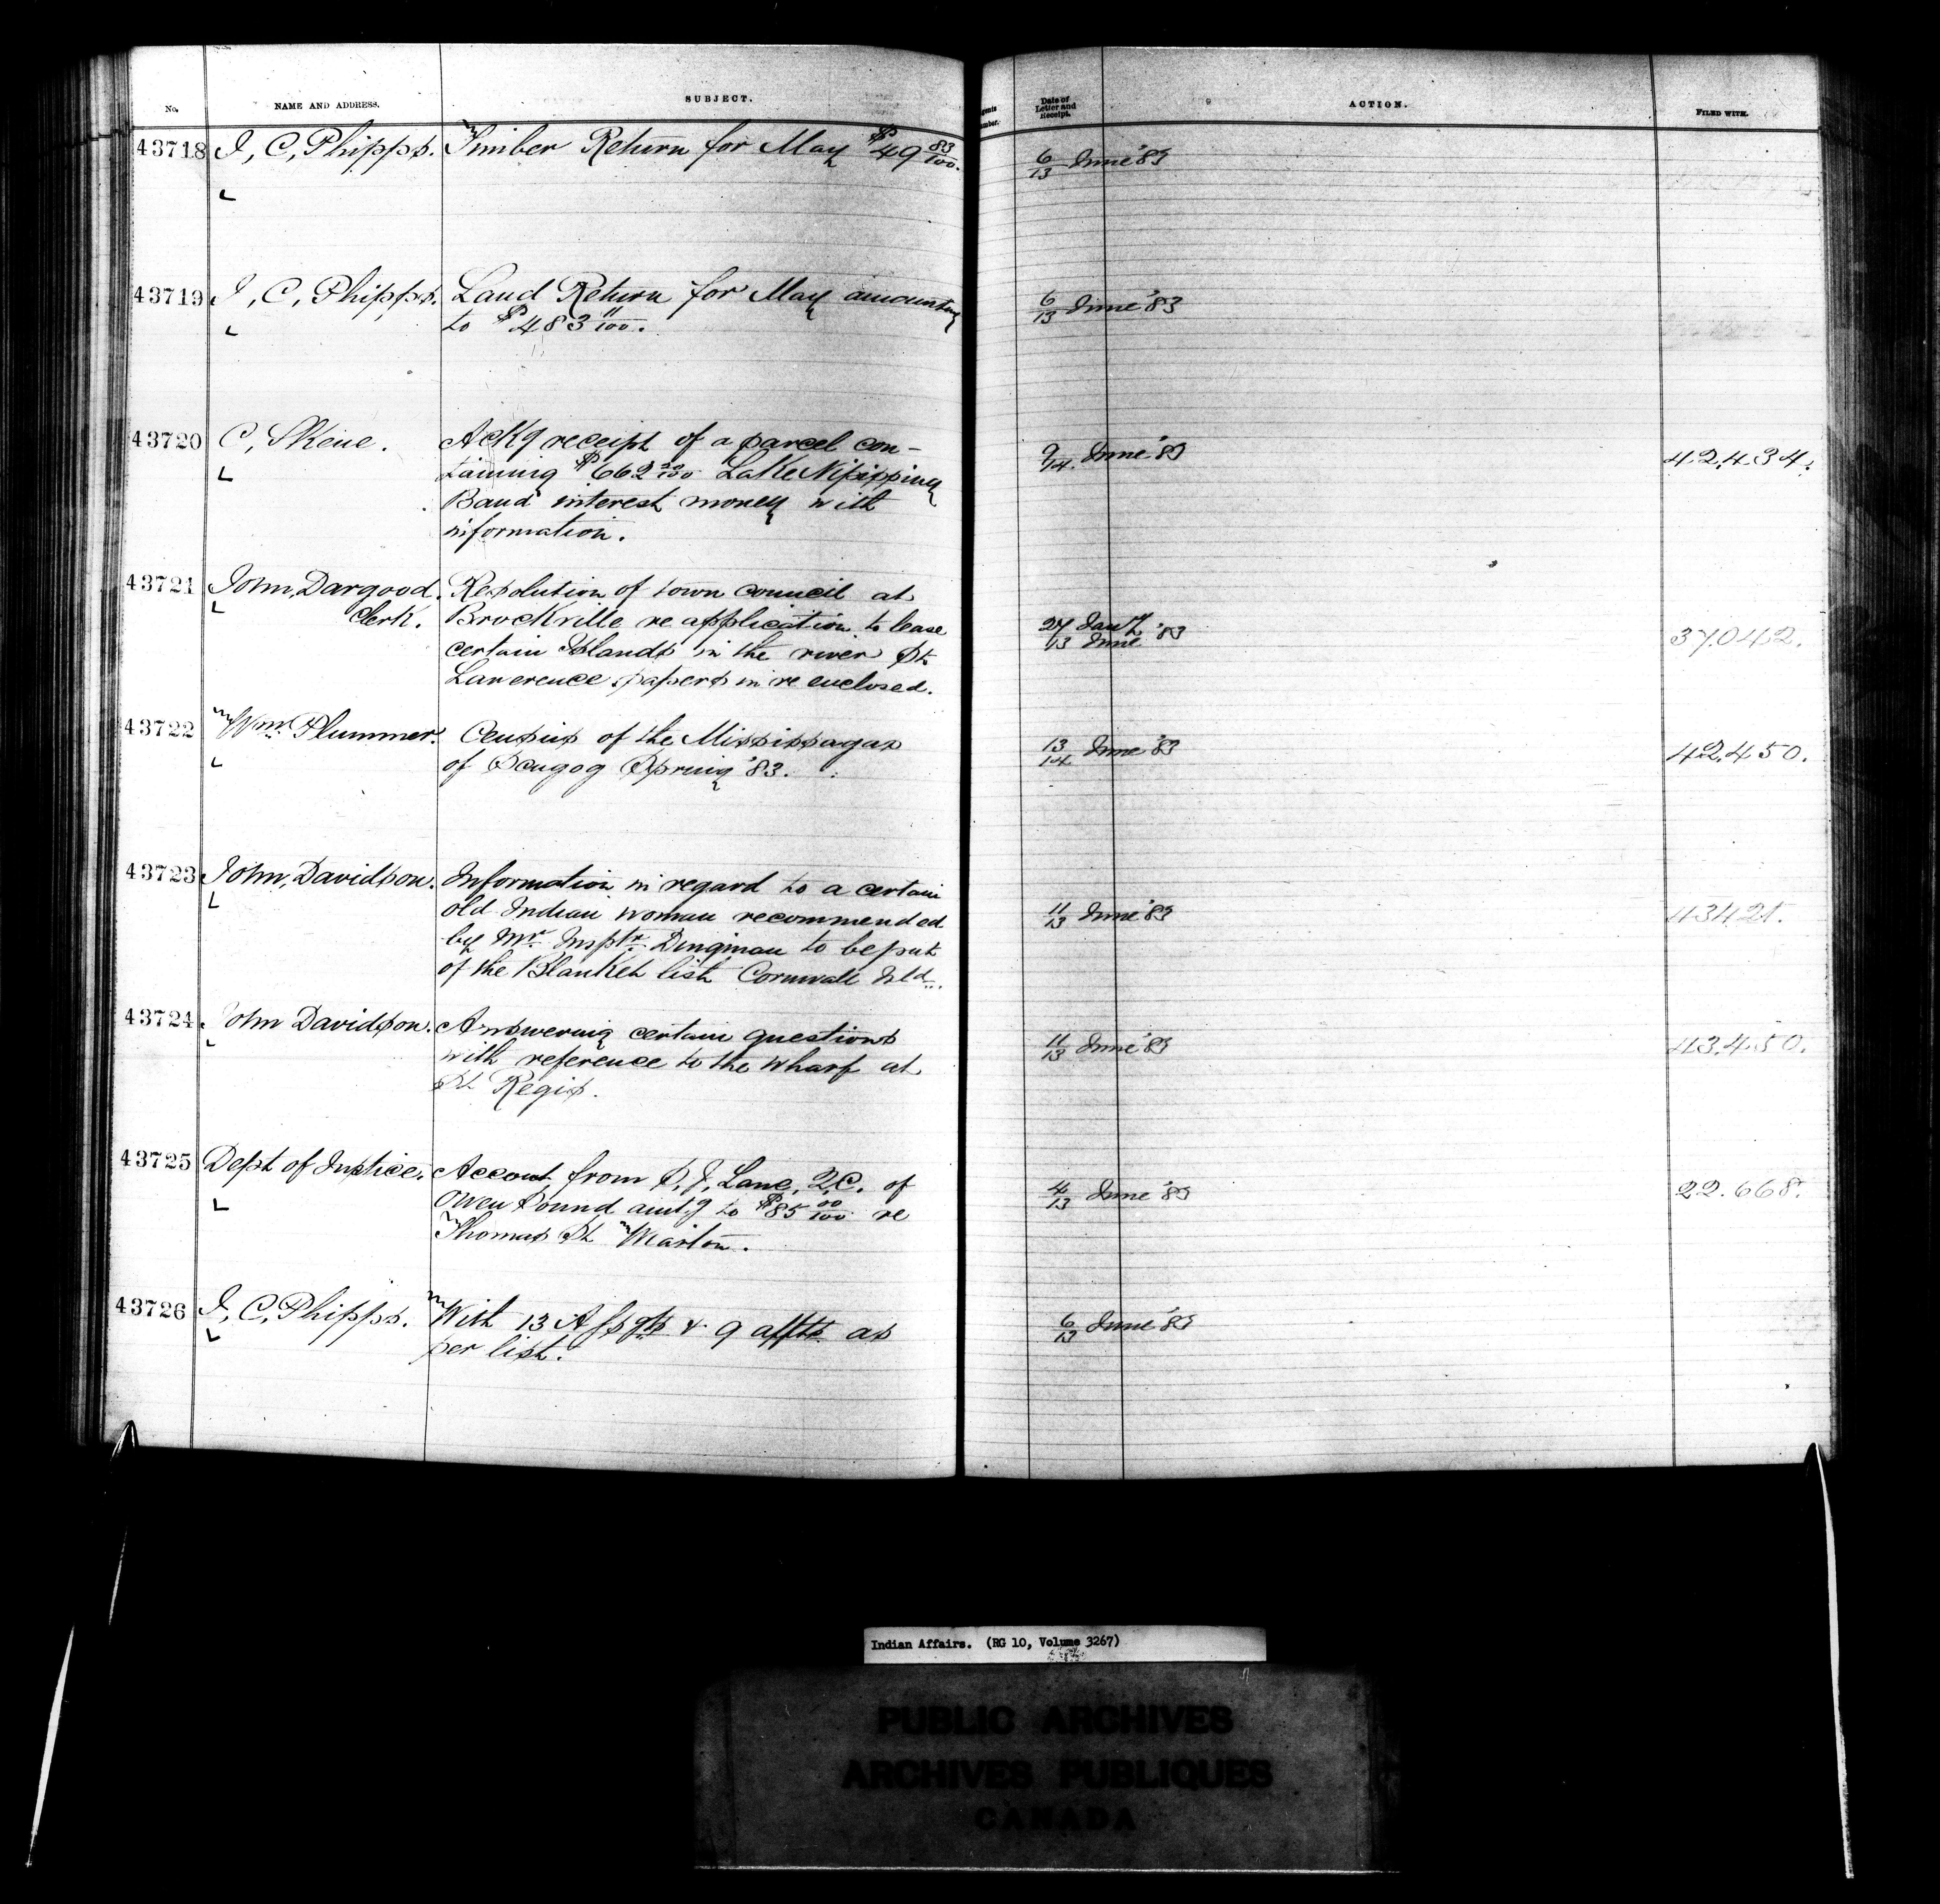 No.
NAME AND ADDRESS.
SUBJECT.
Date of
Letter and
Receipt.
ACTION.
FILED WITH.
43718 J, C, Phipps. Timber Return for May $49 83/100. 6/13 June '83
43719 J, C, Phipps. Land Return for May amounting 6/13 June '83
to $483 11/100.
43720 C, Skene. Ackg receipt of a parcel con- 9/14 June '83 42,434.
taining $662 20/100 Lake Nipissing
Band interest money with
information.
43721 John, Dargood. Resolution of town council at
Clerk. Brockville re application to lease 27 Jany 13 June '83 37,042.
certain Islands in the river St
Lawerence papers in re enclosed.
43722 Wm. Plummer. Census of the Mississagas 13/14 June '83 42,450.
of Scugog Spring '83.
43723 John, Davidson. Information in regard to a certain
old Indian woman recommended 11/13 June '83
by Mr. Insptr. Dingman to be put
of the Blanket list Cornwall Isld.
43724 John Davidson. Answering certain questions 11/13 June '83 43,450.
with reference to the wharf at
St Regis.
43725 Dept of Justice. Account from S, J, Lane, Q.C. of 4/13 June '83 22.668.
Owen Sound amt.g to $85 00/100 re
Thomas St Wiarton.
43726 J, C, Phipps. With 13 Assgts & 9 affts as 6/13 June '83
per list.
Indian Affairs. (RG 10, Volume 3267)
PUBLIC ARCHIVES
ARCHIVES PUBLIQUES
CANADA